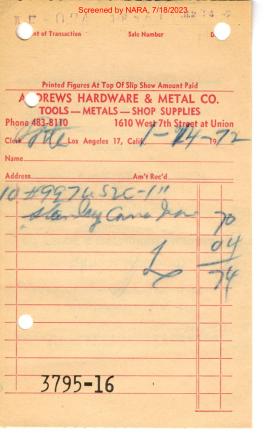 Screened by NARA, 7/18/2023
Amount of Transaction Sale Number
Printed Figures At Top Of Slip Show Amount Paid
ANDREWS HARDWARE & METAL CO.
TOOLS — METALS — SHOP SUPPLIES
Phone 483-8110 1610 West 7th Street at Union
Los Angeles 17, Calif. 1-14-72
Name
Address Am't Rec'd
10 #997652C-1"
Stanley 70
04
74
3795-16